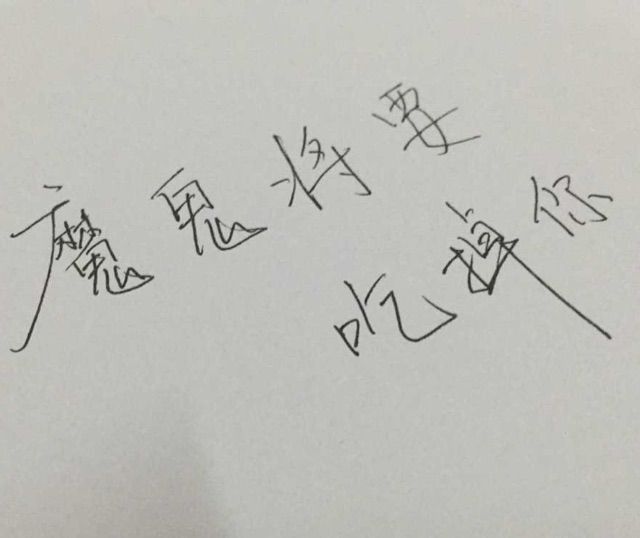 魔鬼将要
吃掉你